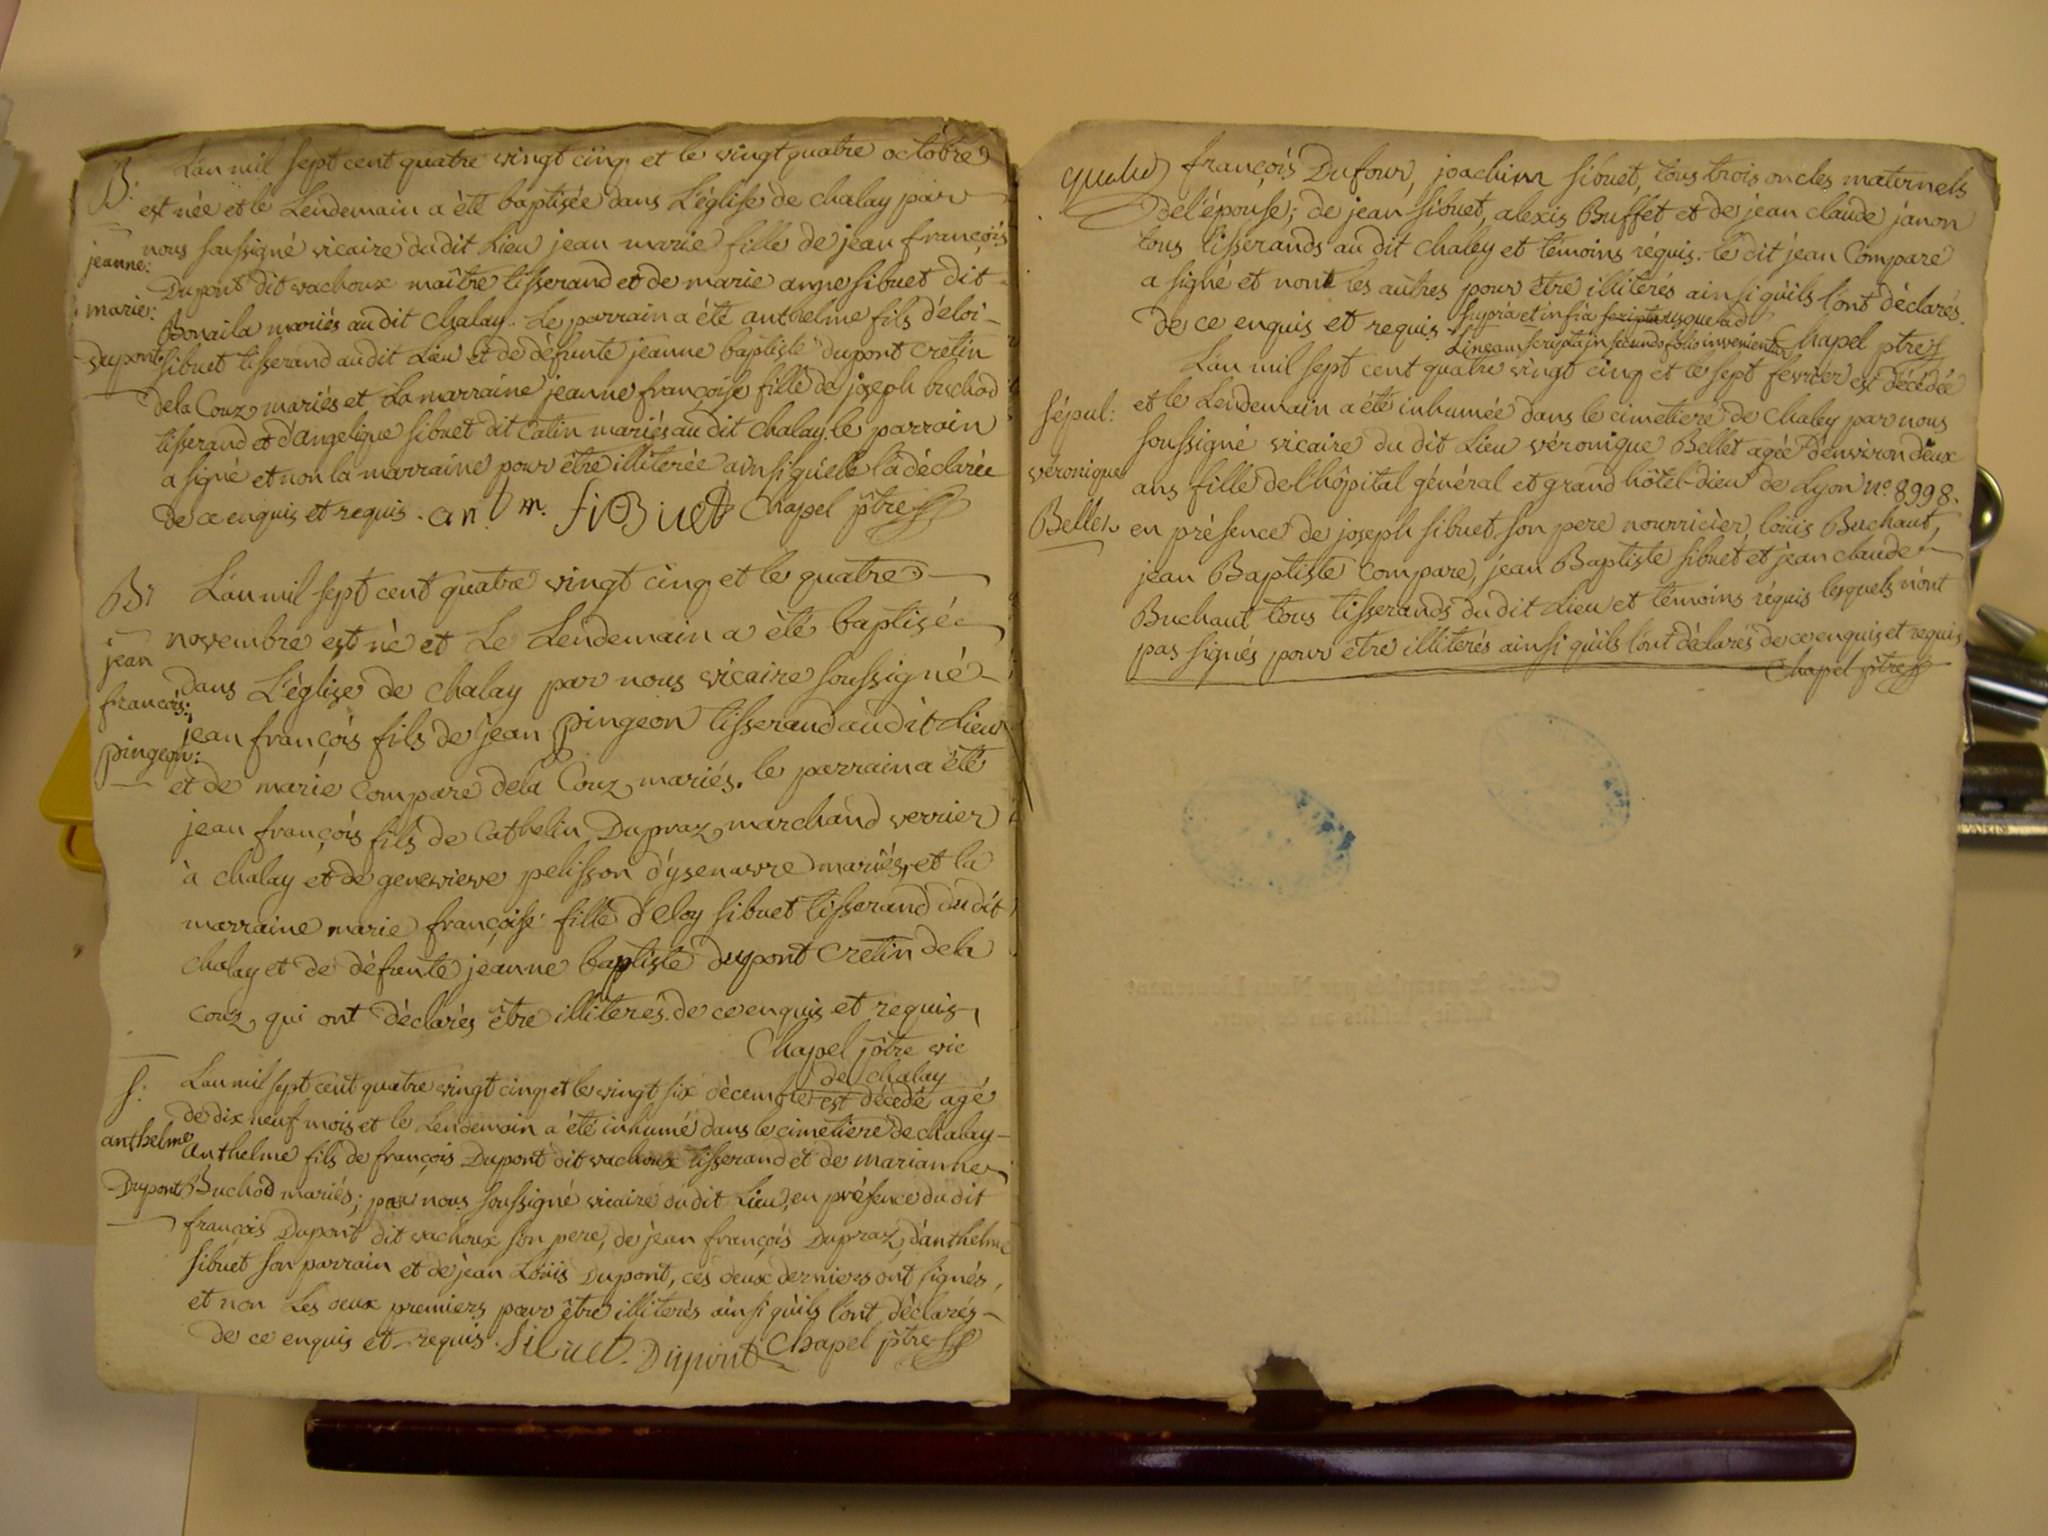 B:
L'an mil sept cent quatre vingt cinq et le vingt quatre octobre
est née et le Lendemain a été baptisée dans L'église de chalay par
nous soussigné vicaire du dit Lieu jean marie fille de jean françois
jeanne:
marie:
Dupont:
Dupont dit vachoux maître tisserand et de marie anne sibuet dit
Bonaila mariés au dit Chalay. Le parrain a été anthelme fils d'éloi
sibuet tisserand au dit Lieu et de défunte jeanne baptiste dupont cretin
dela Couz mariés et La marraine jeanne françoise fille de joseph buchod
tisserand et d'angelique sibuet dit Catin mariés au dit Chalay. le parrain
a signé et non la marraine pour être illiterée ainsi qu'elle l'a déclarée
de ce enquis et requis. an. t m. SiBuet Chapel ptre
B:
jean
françois:
pingeon:
L'an mil sept cent quatre vingt cinq et le quatre
novembre est né et Le Lendemain a été baptisée
dans L'église de Chalay par nous vicaire soussigné
jean françois fils de jean pingeon tisserand au dit Lieu
et de marie Compare dela Couz mariés. le parrain a été
jean françois fils de Cathelin Dupraz marchand verrier
à chalay et de genevieve pelisson d'ysenavre mariés, et la
marraine marie françoise fille d'Eloy sibuet tisserand du dit
chalay et de défunte jeanne baptiste dupont Cretin dela
Couz, qui ont déclarés être illiterés. de ce enquis et requis
Chapel ptre vic
de chalay
S:
anthelme
Dupont
L'an mil sept cent quatre vingt cinq et le vingt six décembre est décédé agé
de dix neuf mois et le Lendemain a été inhumé dans le cimetiere de chalay
Anthelme fils de françois Dupont dit vachoux tisserand et de marianne
Buchod mariés; par nous soussigné vicaire du dit Lieu, en présence du dit
françois Dupont dit vachoux son pere, de jean françois Dupraz, d'anthelme
sibuet son parrain et de jean Loüis Dupont, ces deux derniers ont signés,
et non Les deux premiers pour être illiterés ainsi qu'ils l'ont déclarés
de ce enquis et requis. Sibuet. Dupont Chapel ptre
françois Dufour, joachim sibuet, tous trois oncles maternels
de l'épouse; de jean sibuet, alexis Buffet et de jean claude janon
tous tisserands au dit chaley et témoins réquis. le dit jean Compare
a signé et non les autres pour être illitérés ainsi qu'ils l'ont déclarés.
De ce enquis et requis. supra et infra scripta usque ad
Lineam scripta in secundo folio invenientur Chapel ptre
Sépul:
véronique
Bellet
L'an mil sept cent quatre vingt cinq et le sept fevrier est décédée
et le Lendemain a été inhumée dans le cimetiere de Chaley par nous
soussigné vicaire du dit Lieu véronique Bellet agée d'environ deux
ans fille de l'hôpital général et grand hôtel-dieu de Lyon n°. 8998.
en présence de joseph sibuet son pere nourricier, loüis Buchaut,
jean Baptiste Compare, jean Baptiste sibuet et jean claude
Buchaut tous tisserands du dit Lieu et témoins réquis lesquels n'ont
pas signés pour être illitérés ainsi qu'ils l'ont déclarés de ce enquis et requis
Chapel ptre